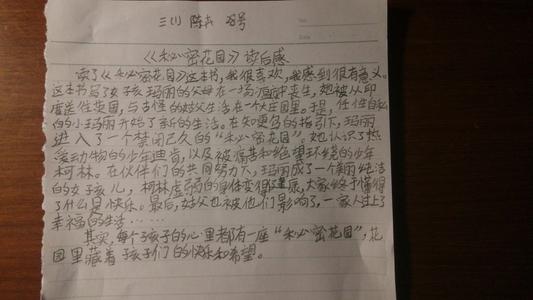 三(1) 陈 28号
《秘密花园》读后感
读了《秘密花园》这本书,我很喜欢,我感到很有意义。
这本书写了女孩玛丽的父母在一场瘟疫中丧生,她被从印
度送往英国,与古怪的姑父生活在一个大庄园里。于是,任性自私
的小玛丽开始了新的生活。在知更鸟的指引下,玛丽
进入了一个禁闭已久的“秘密花园”,她认识了热
爱动物的少年迪肯,以及被痛苦和绝望环绕的少年
柯林。在伙伴们的共同努力下,玛丽成了一个美丽纯洁
的女孩儿,柯林虚弱的身体变得健康,大家终于懂得
了什么是快乐。最后,姑父也被他们影响了,一家人过上了
幸福的生活……
其实,每个孩子的心里都有一座“秘密花园”,花
园里藏着孩子们的快乐和希望。